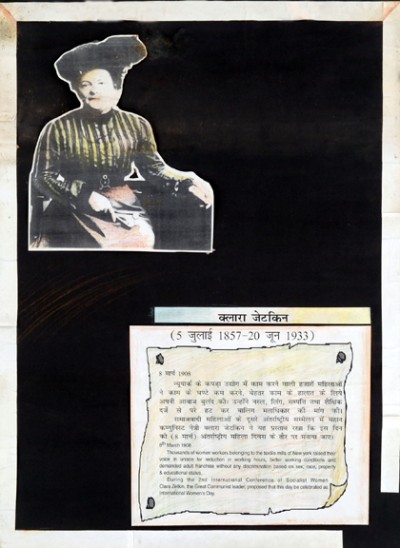 क्लारा जेटकिन
(5 जुलाई 1857-20 जून 1933)
8 मार्च 1908
न्यूयार्क के कपड़ा उद्योग में काम करने वाली हजारों महिलाओं
ने काम के घण्टे कम करने, बेहतर काम के हालात के लिये
अपनी आवाज बुलंद की। उन्होंने नस्ल, लिंग, सम्पत्ति तथा शैक्षिक
दर्जे से परे हट कर बालिग मताधिकार की मांग की।
समाजवादी महिलाओं के दूसरे अंतर्राष्ट्रीय सम्मेलन में महान
कम्युनिस्ट नेत्री क्लारा जेटकिन ने यह प्रस्ताव रखा कि इस दिन
को (8 मार्च) अंतर्राष्ट्रीय महिला दिवस के तौर पर मनाया जाए।
8th March 1908
Thousands of women workers belonging to the textile mills of New york raised their
voice in unison for reduction in working hours, better working conditions and
demanded adult franchise without any discrimination based on sex, race, property
& educational status.
During the 2nd International Conference of Socialist Women
Clara Zetkin, the Great Communist leader, proposed that this day be celebrated as
International Women's Day.